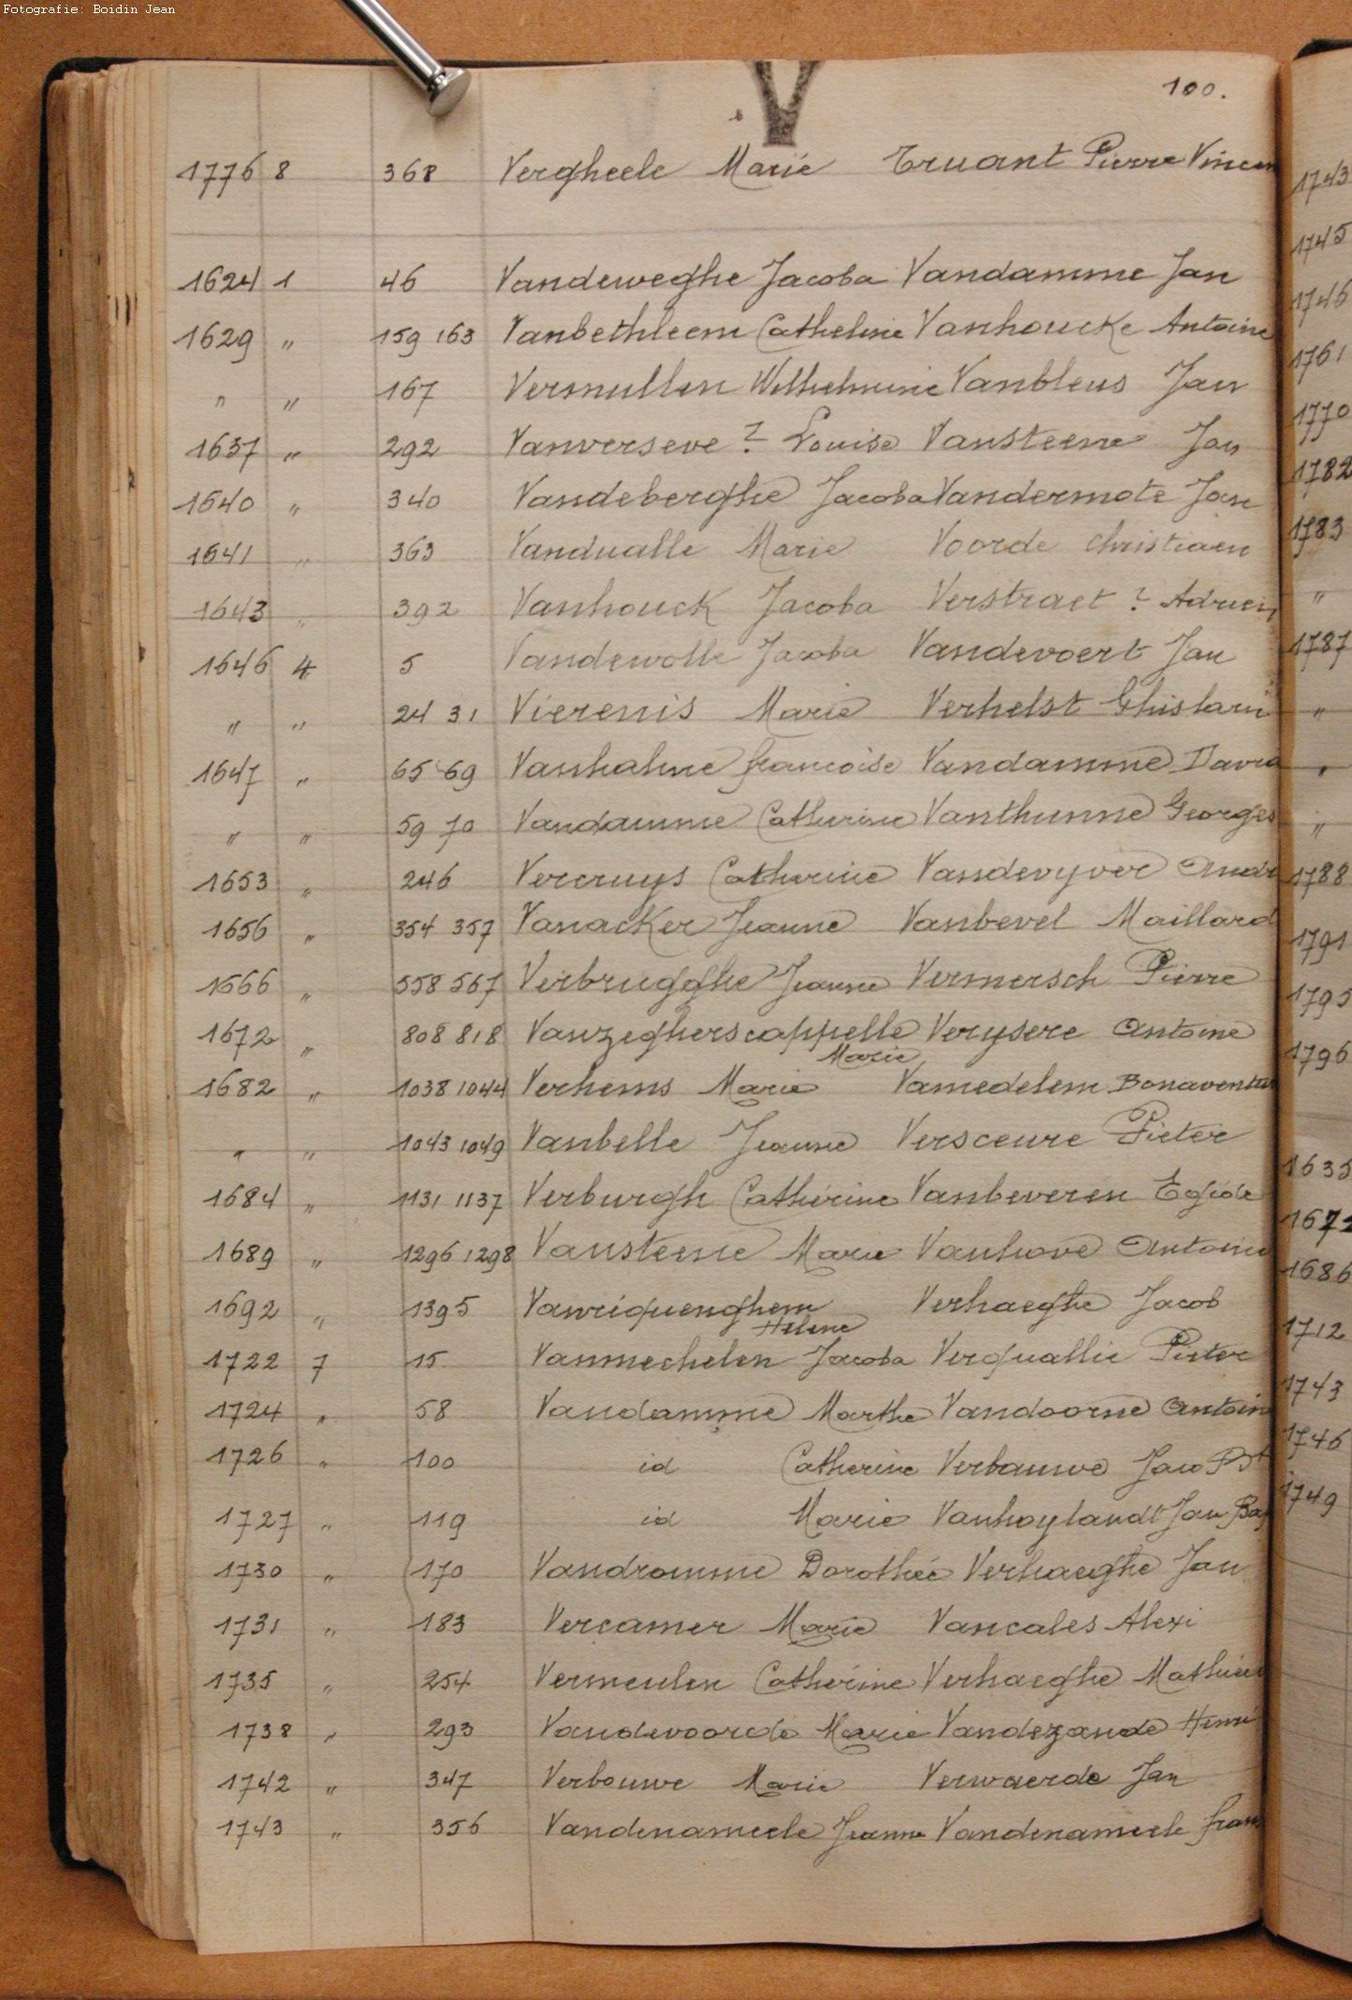 Fotografie: Boidin Jean
100.
V
1776 8 368 Vergheele Marie Truant Pierre Vincen
1624 1 46 Vandeweghe Jacoba Vandamme Jan
1629 " 159 163 Vanbethleem Catheline Vanhoucke Antoine
" " 167 Vermullen Wilhelmine Vanbleus Jan
1637 " 292 Vanverseve ? Louise Vansteene Jan
1640 " 340 Vandeberghe Jacoba Vandermote Jan
1641 " 363 Vandualle Marie Voorde christiaen
1643 " 392 Vanhouck Jacoba Verstraet ? Adrien
1646 4 5 Vandewolle Jacoba Vandevoert Jan
" " 24 31 Vierenis Marie Verhelst Ghislain
1647 " 65 69 Vanhalme francoise Vandamme David
" " 59 70 Vandamme Catherine Vanthunne Georges
1653 " 246 Vercruys Catherine Vandevyver Andr
1656 " 354 357 Vanacker Jeanne Vanbevel Maillard
1666 " 558 567 Verbrugghe Jeanne Vermersch Pierre
1672 " 808 818 Vanzegherscappelle Verysere Antoine
Marie
1682 " 1038 1044 Verhems Marie Vamedelem Bonaventur
" " 1043 1049 Vanbelle Jeanne Versceure Pieter
1684 " 1131 1137 Verburgh Catherine Vanbeveren Egide
1689 " 1296 1298 Vansteene Marie Vanhove Antoine
1692 " 1395 Vanriquenghem Verhaeghe Jacob
Helene
1722 7 15 Vanmechelen Jacoba Verquallie Pieter
1724 " 58 Vandamme Marthe Vandoorne Antoin
1726 " 100 id Catherine Verbauwe Jaco Bt
1727 " 119 id Marie Vanhoylandt Jan Bap
1730 " 170 Vandromme Dorothée Verhaeghe Jan
1731 " 183 Vercamer Marie Vancales Alexi
1735 " 254 Vermeulen Catherine Verhaeghe Mathieu
1738 " 293 Vandevoorde Marie Vandezande Henri
1742 " 347 Verbouwe Marie Verwaerde Jan
1743 " 356 Vandenameele Jeanne Vandenameele fran
1743
1745
1746
1761
1770
1782
1783
"
1787
"
"
"
1788
1791
1795
1796
1635
1672
1686
1712
1743
1746
1749